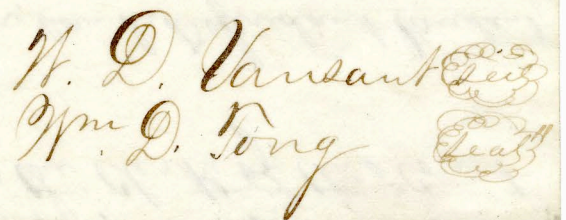 W. D. Vansant Seal
Wm. D. Tong Seal